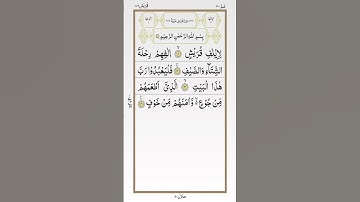 بِسْمِ اللّٰهِ الرَّحْمٰنِ الرَّحِيْمِ
لِاِيْلٰفِ قُرَيْشٍ ۙ اٖلٰفِهِمْ رِحْلَةَ
الشِّتَآءِ وَالصَّيْفِ ۚ فَلْيَعْبُدُوْا رَبَّ
هٰذَا الْبَيْتِ ۙ الَّذِيْٓ اَطْعَمَهُمْ
مِّنْ جُوْعٍ ۙ وَّاٰمَنَهُمْ مِّنْ خَوْفٍ